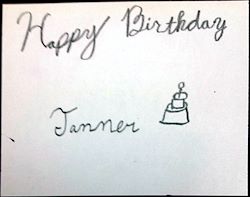 Happy Birthday
Tanner